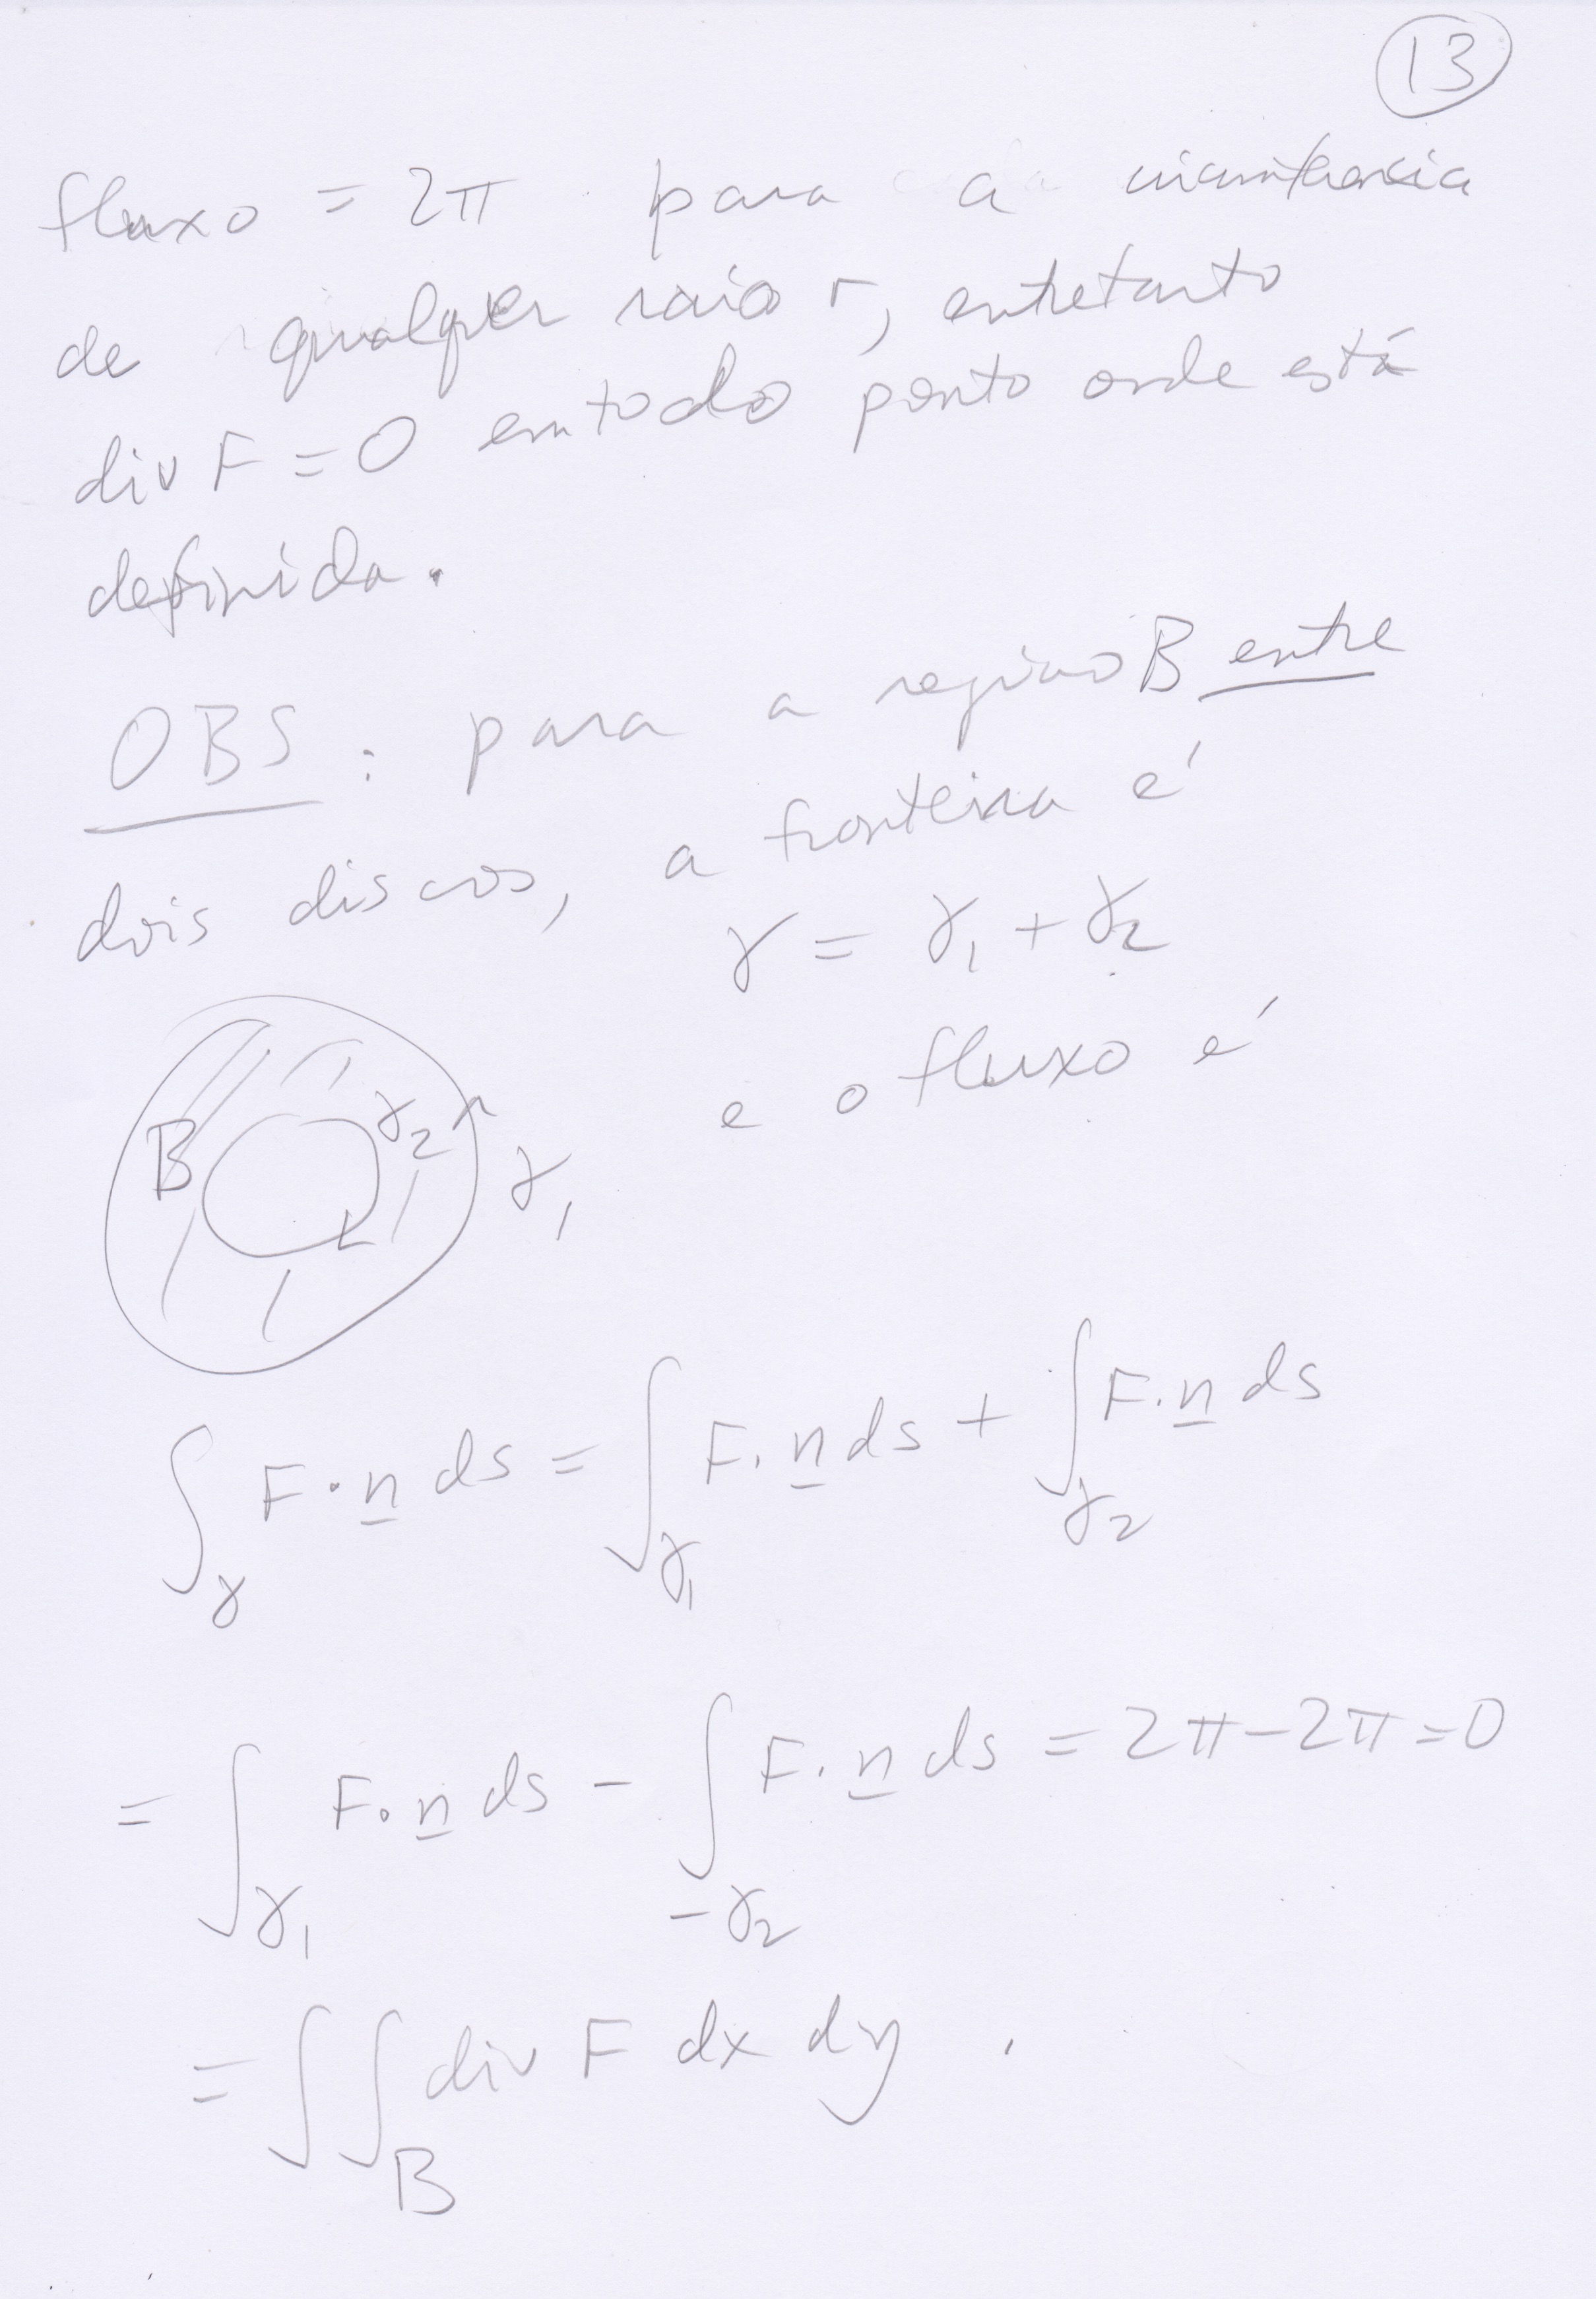 13
fluxo = 2π para a circunferência
de qualquer raio r, entretanto
div F = 0 em todo ponto onde está
definida.
OBS : para a região B entre
dois discos, a fronteira é
γ = γ₁ + γ₂
e o fluxo é
B γ₂ γ₁
∫_γ F · n ds = ∫_γ₁ F · n ds + ∫_γ₂ F · n ds
= ∫_γ₁ F · n ds − ∫_−γ₂ F · n ds = 2π − 2π = 0
= ∫∫_B div F dx dy .